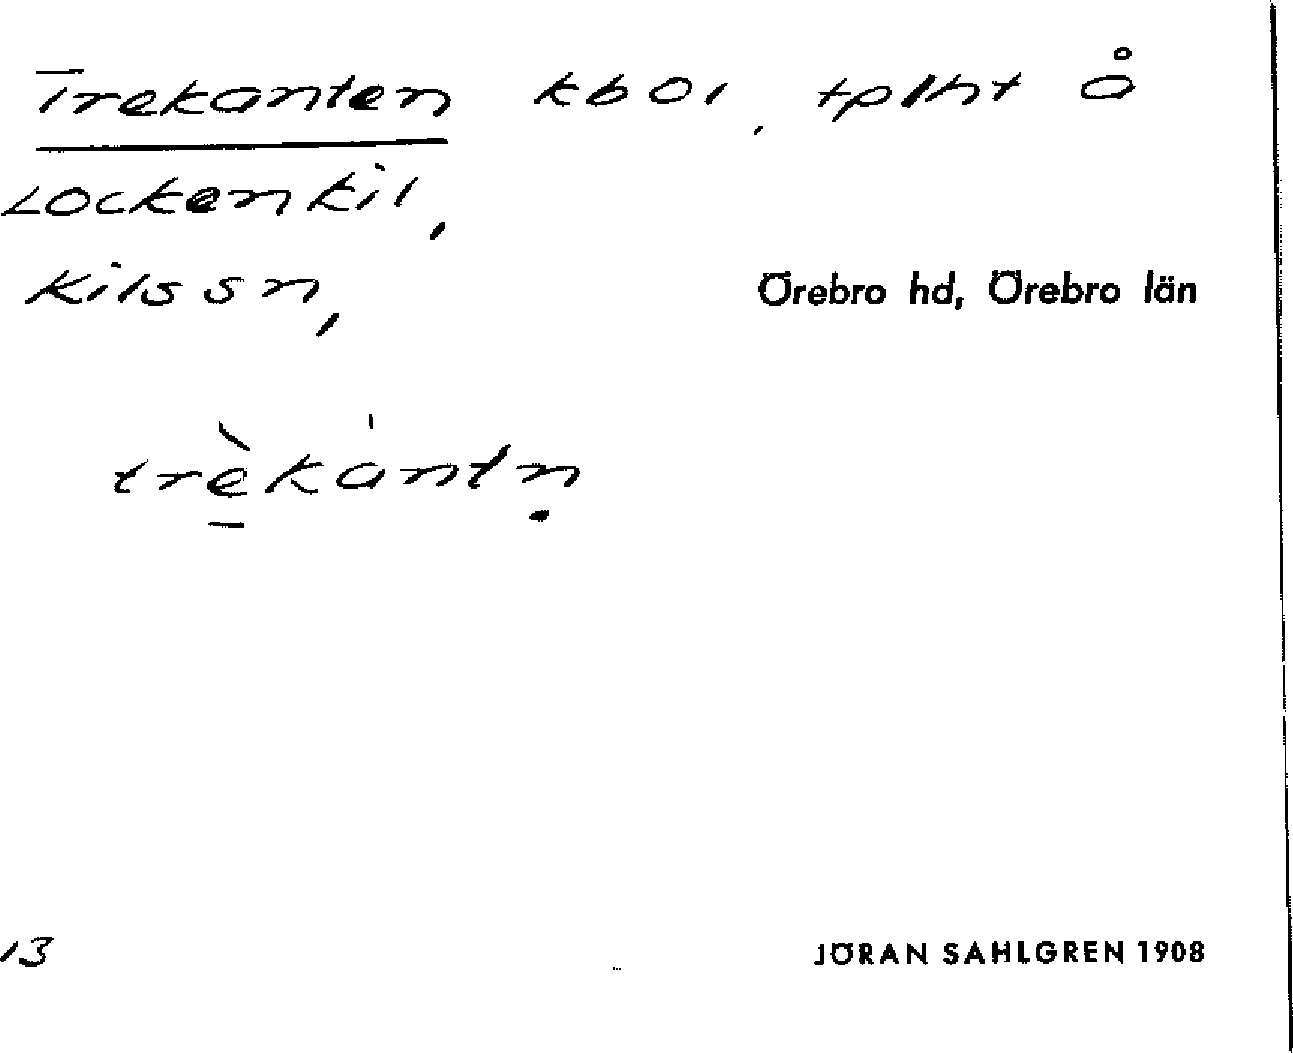 Trekanten kbol, tplht å
Lockenkil,
Kils sn, Örebro hd, Örebro län
trèkántn̥
13 JÖRAN SAHLGREN 1908